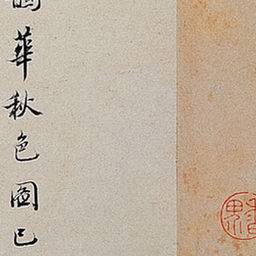 華秋色圖已